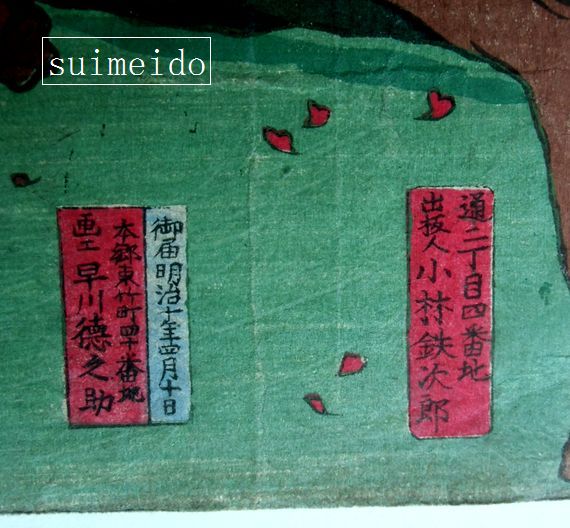 suimeido
通二丁目四番地
出板人 小林鉄次郎
御届明治十年四月十日
本郷東竹町四十番地
画工 早川徳之助